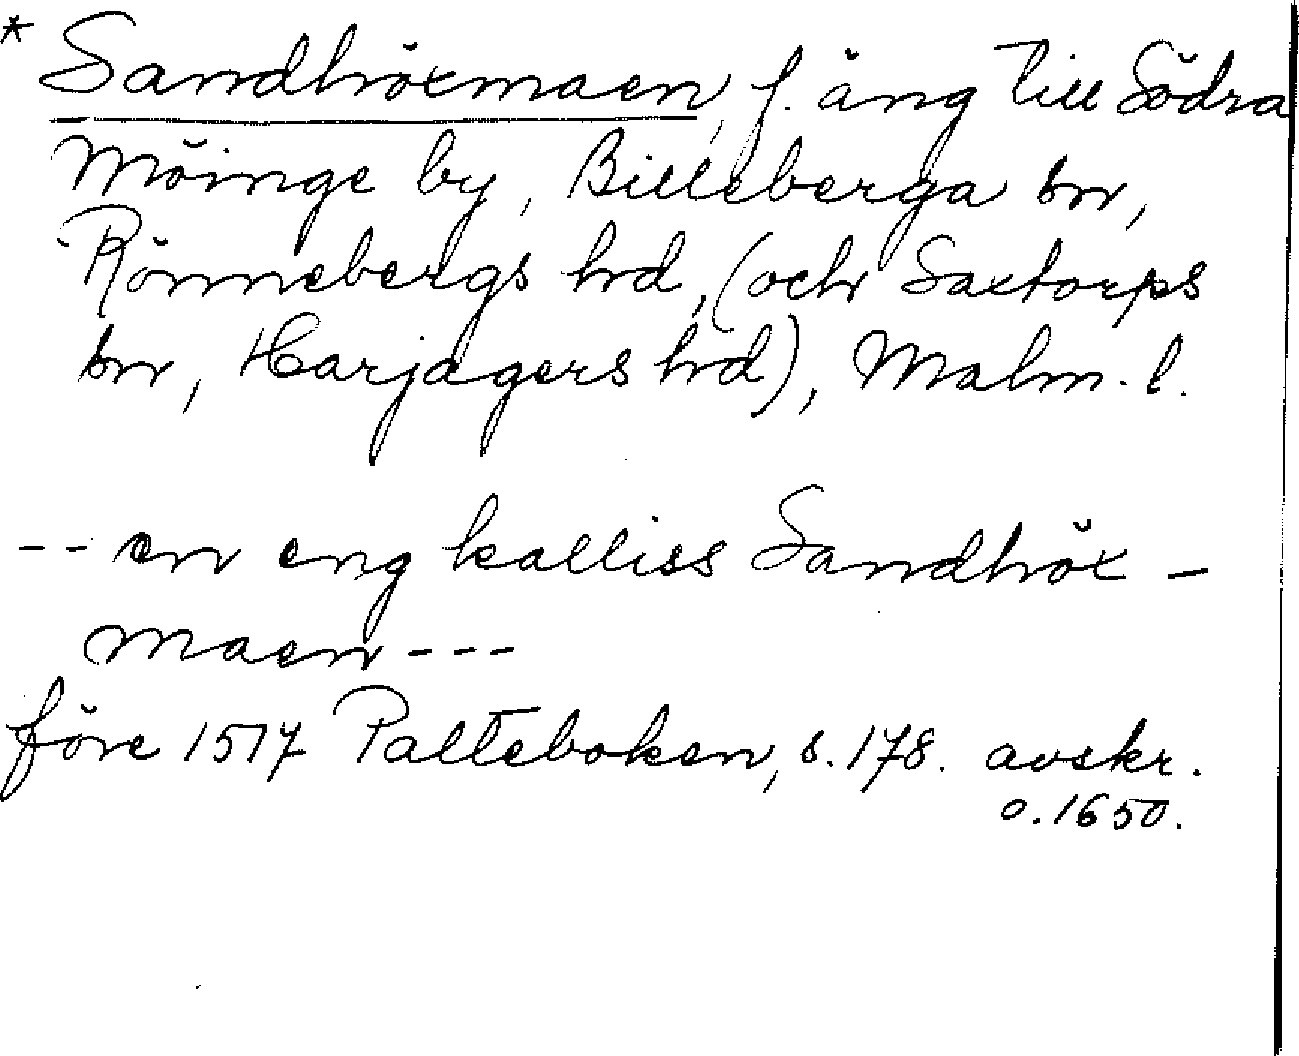 * Sandhöxmaen, f. äng till Södra
Möinge by, Billeberga sn,
Rönnebergs hd, (och Saxtorps
sn, Harjagers hd), Malm. l.
-- en eng kalliss Sandhöx-
maen ---
före 1517 Palteboken, s. 178. avskr.
o. 1650.